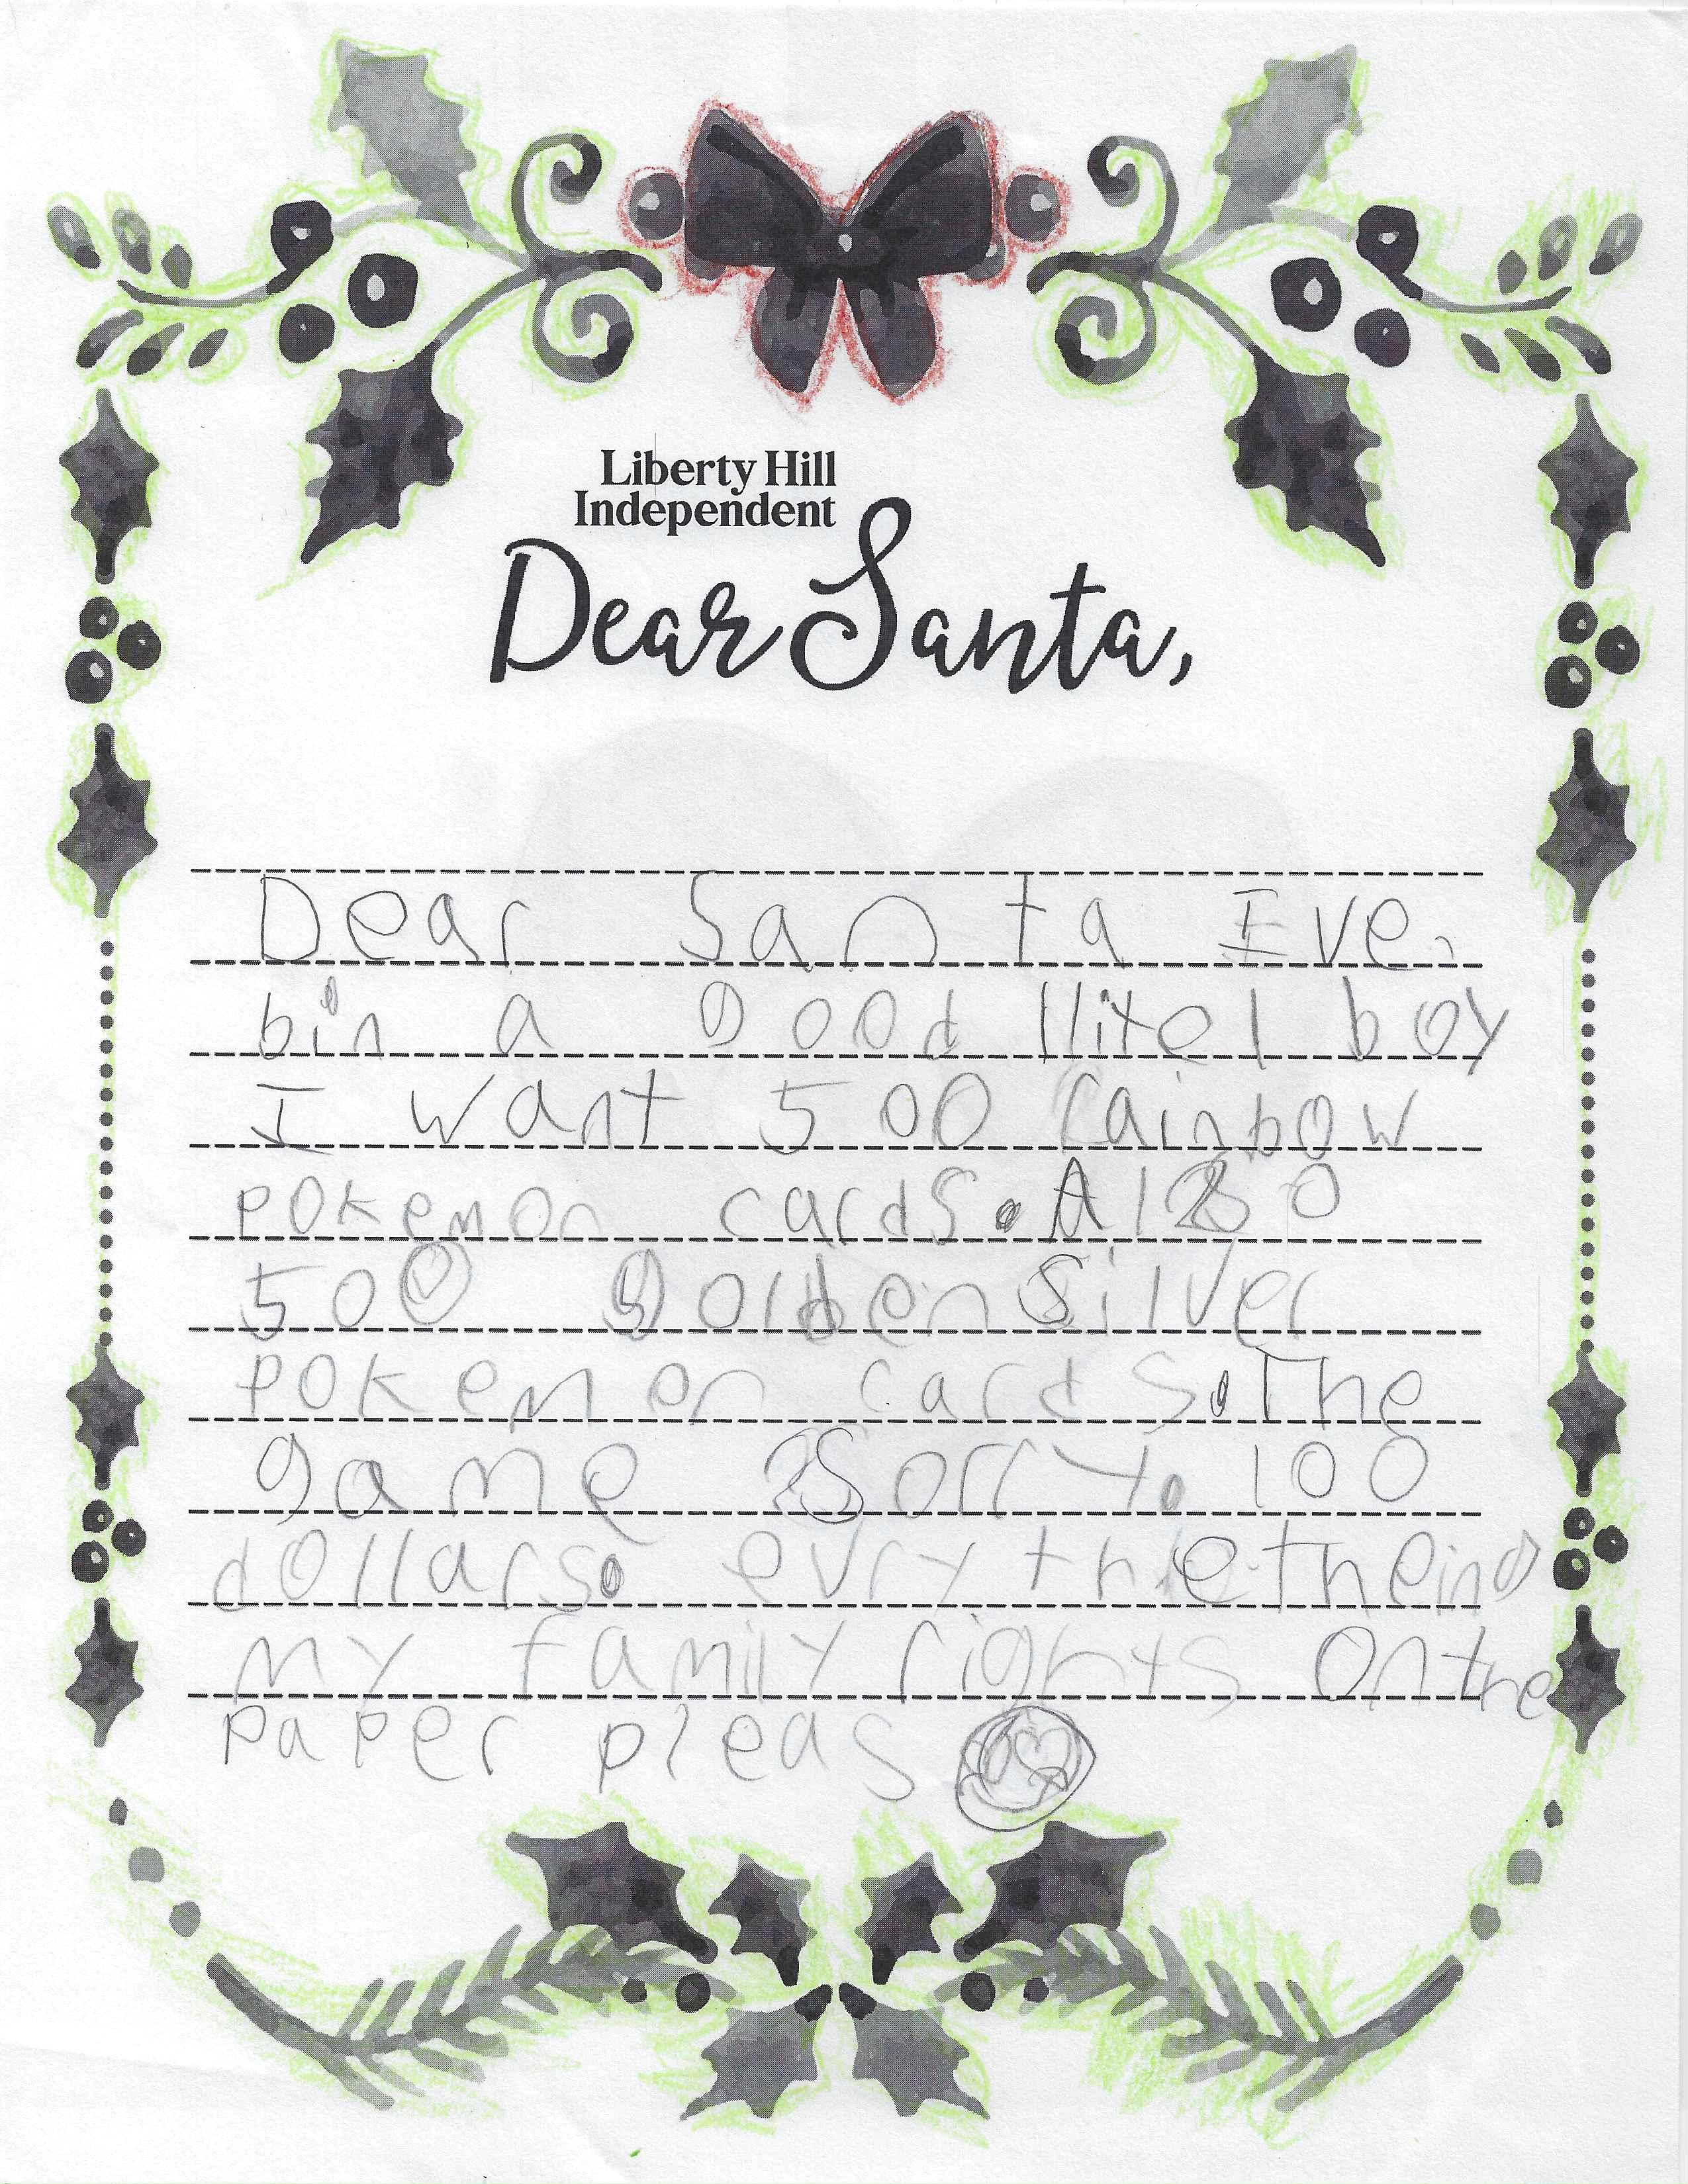 Liberty Hill
Independent
Dear Santa,
Dear Santa Ive
bin a good llitel boy
I want 500 rainbow
pokemon cards. Also
500 golden silver
pokemon cards. The
game Sorry. 100
dollars. evry
my family rights on the
paper pleas